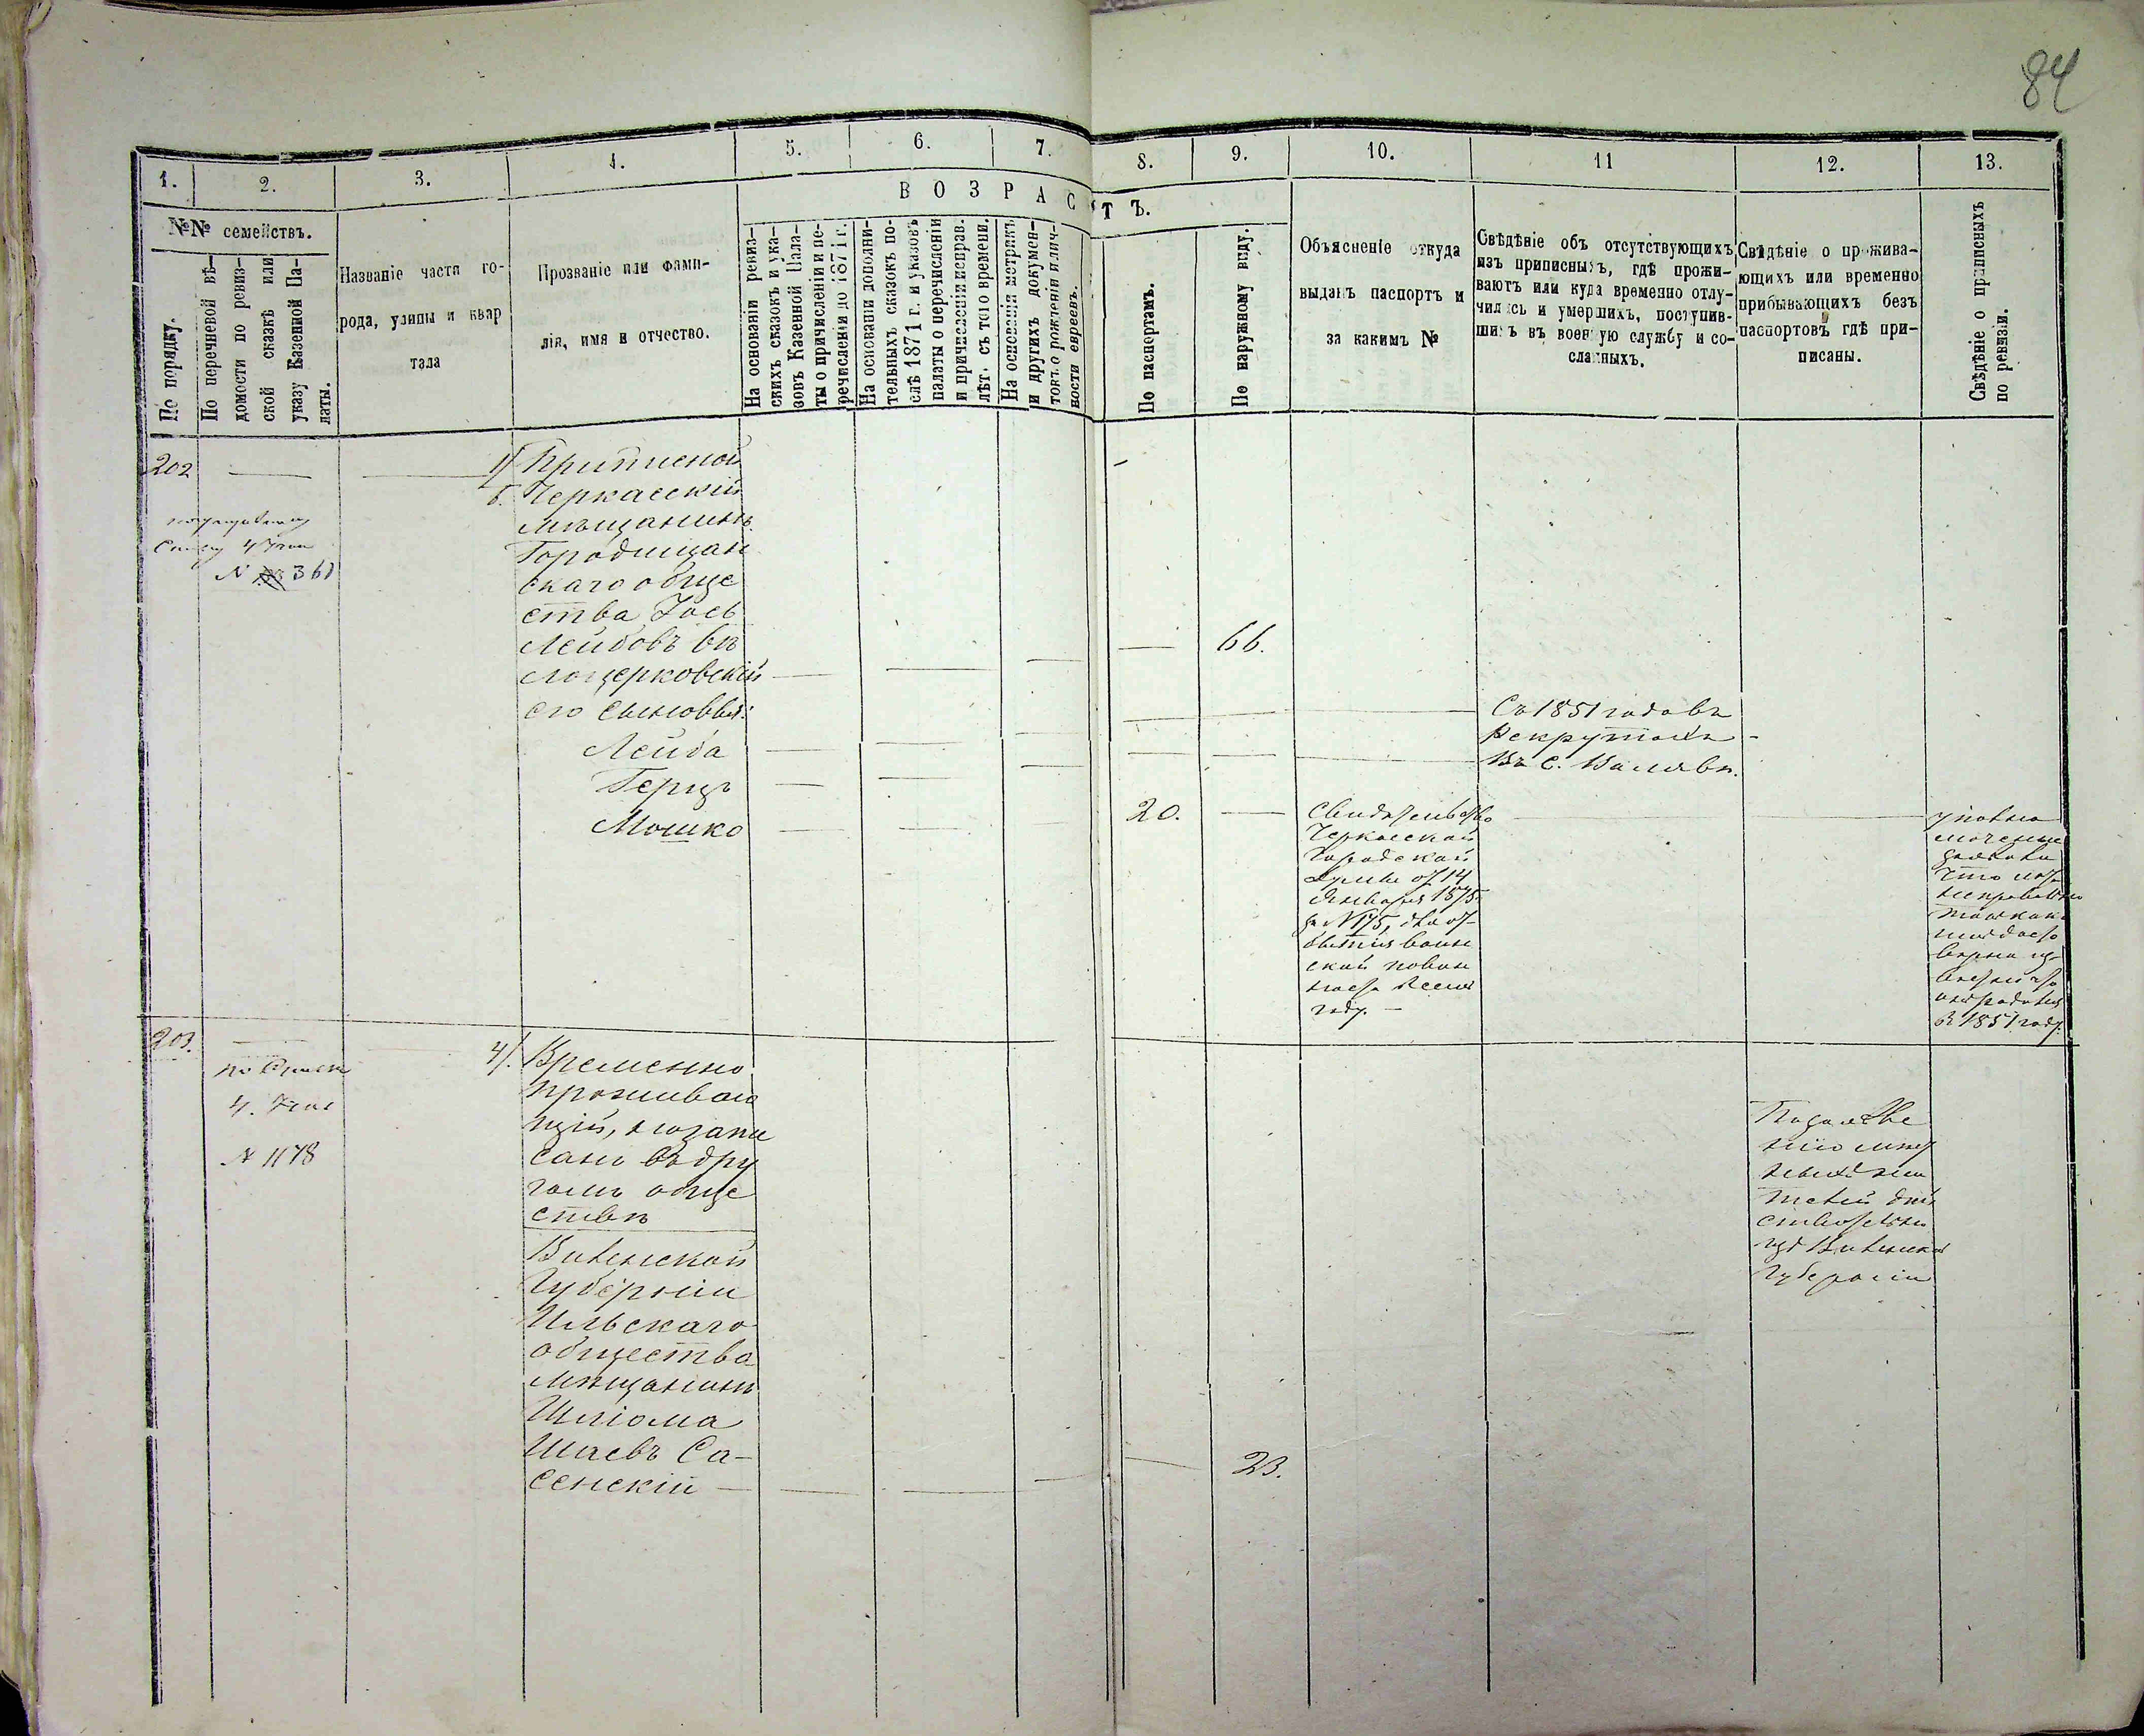 84
1.
2.
3.
4.
5.
6.
7.
8.
9.
10.
11
12.
13.
№№ семействъ.
По порядку.
По перечневой вѣ-
домости по ревиз-
ской сказкѣ или
указу Казенной Па-
латы.
Названіе части го-
рода, улицы и квар
тала
Прозваніе или фами-
лія, имя и отчество.
ВОЗРАСТЪ.
На основаніи ревиз-
скихъ сказокъ и ука-
зовъ Казенной Пала-
ты о причисленіи и пе-
речисленіи до 1871 г.
На основаніи дополни-
тельныхъ сказокъ по-
слѣ 1871 г. и указовъ
палаты о перечисленіи
и причисленіи исправ.
лѣт. съ того времени.
На основаній метрикъ
и другихъ докумен-
товъ о рожденіи и лич-
ности евреевъ.
По паспортамъ.
По наружному виду.
Объясненіе откуда
выданъ паспортъ и
за какимъ №
Свѣдѣніе объ отсутствующихъ
изъ приписныхъ, гдѣ прожи-
ваютъ или куда временно отлу-
чились и умершихъ, поступив-
шихъ въ военную службу и со-
сланныхъ.
Свѣдѣніе о прожива-
ющихъ или временно
прибывающихъ безъ
паспортовъ гдѣ при-
писаны.
Свѣдѣніе о приписныхъ
по ревизіи.
202
N 361
1/ Приписной
б. Черкасскій
мѣщанинъ
Городищан
скаго обще
ства Іось
Лейбовъ Бѣ
лоцерковскій
его сыновья:
Лейба
Герцъ
Мошко
66.
Съ 1851 года въ
рекрутахъ
Въ с. Валявѣ.
20.
Свидѣтельство
Черкасской
Городской
Думы от 14
Января 1875
за N 175, для от
бытія воин
ской повин
году.
уполно
моченные
что
вѣрно
въ 1851 году.
203.
по Списк
4. Учас
N 1178
4/. Временно
проживаю
щій, а запи
санъ въ дру
гомъ обще
ствѣ
Виленской
Губерніи
Ильскаго
общества
мѣщанинъ
Шліома
Шаевъ Са-
сенскій
23.
По заявле
нію мѣст
ныхъ жи
телей дѣй
ствительно
изъ Виленской
Губерніи